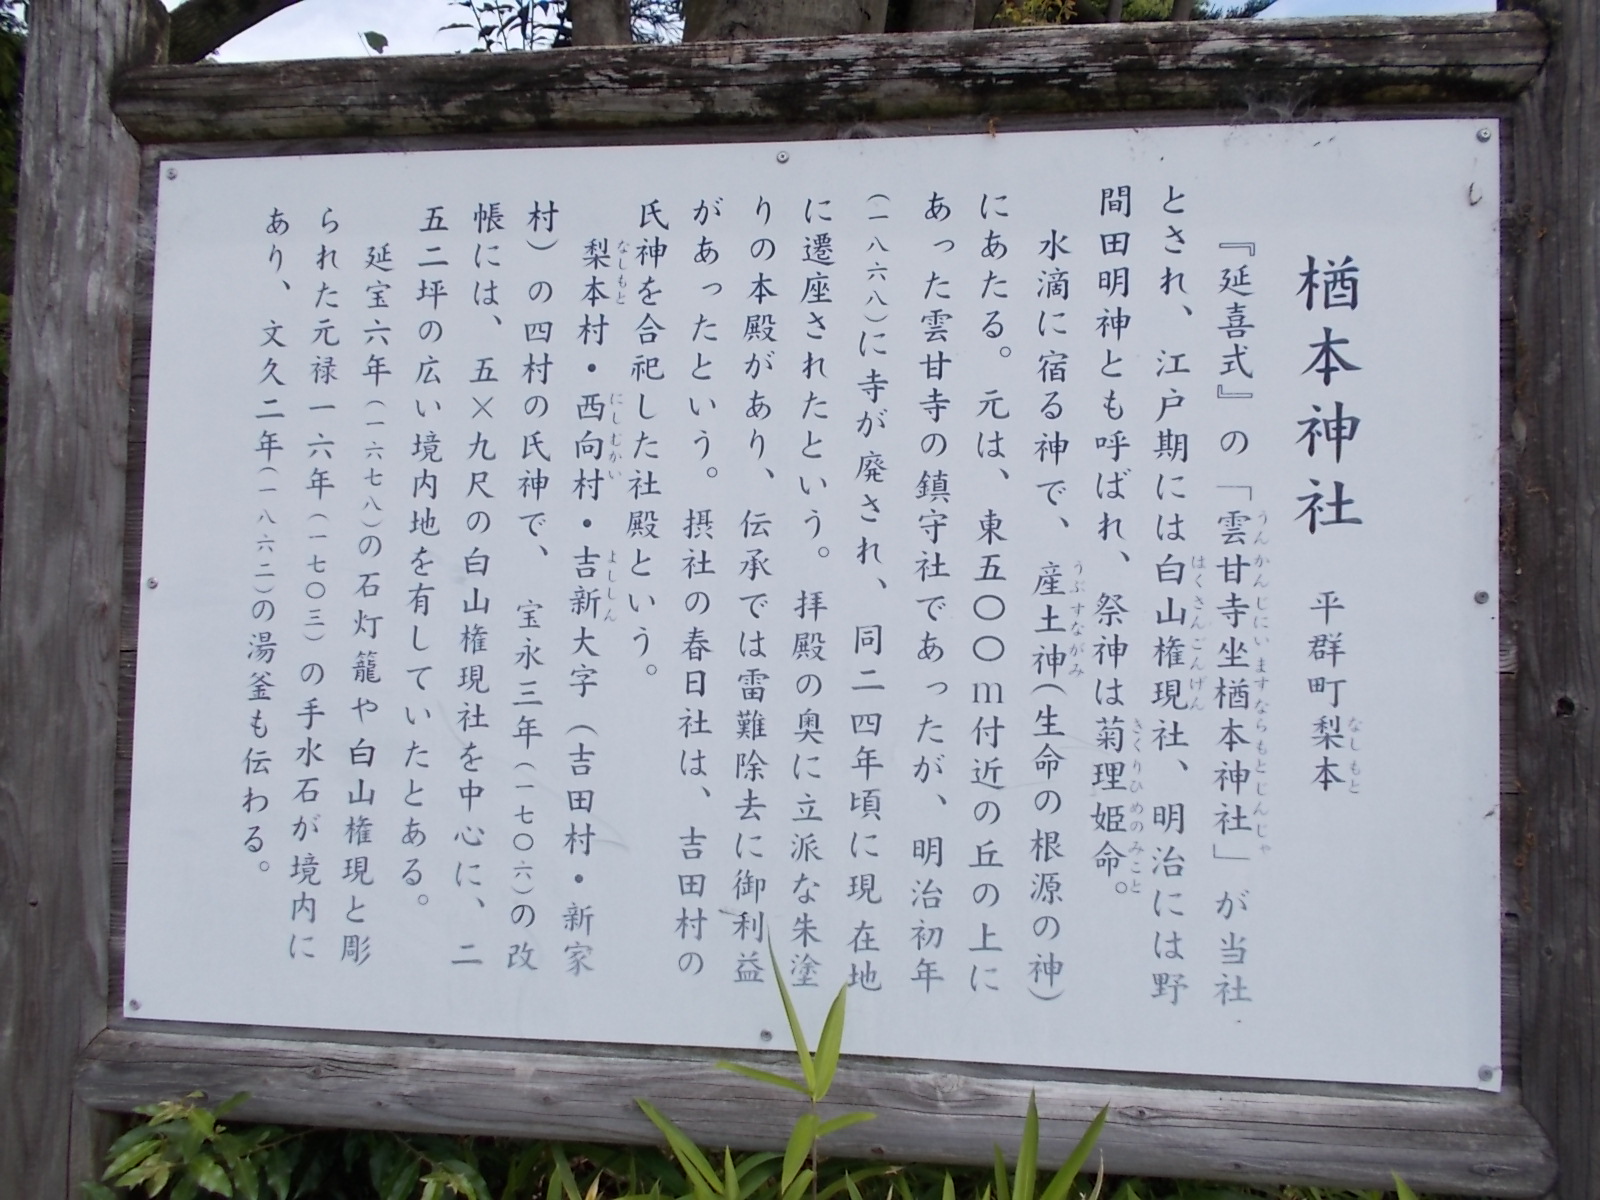 楢本神社　平群町梨本
『延喜式』の「雲甘寺坐楢本神社」が当社
とされ、江戸期には白山権現社、明治には野
間田明神とも呼ばれ、祭神は菊理姫命。
水滴に宿る神で、産土神(生命の根源の神)
にあたる。元は、東五〇〇m付近の丘の上に
あった雲甘寺の鎮守社であったが、明治初年
(一八六八)に寺が廃され、同二四年頃に現在地
に遷座されたという。拝殿の奥に立派な朱塗
りの本殿があり、伝承では雷難除去に御利益
があったという。摂社の春日社は、吉田村の
氏神を合祀した社殿という。
梨本村・西向村・吉新大字(吉田村・新家
村)の四村の氏神で、宝永三年(一七〇六)の改
帳には、五×九尺の白山権現社を中心に、二
五二坪の広い境内地を有していたとある。
延宝六年(一六七八)の石灯籠や白山権現と彫
られた元禄一六年(一七〇三)の手水石が境内に
あり、文久二年(一八六二)の湯釜も伝わる。